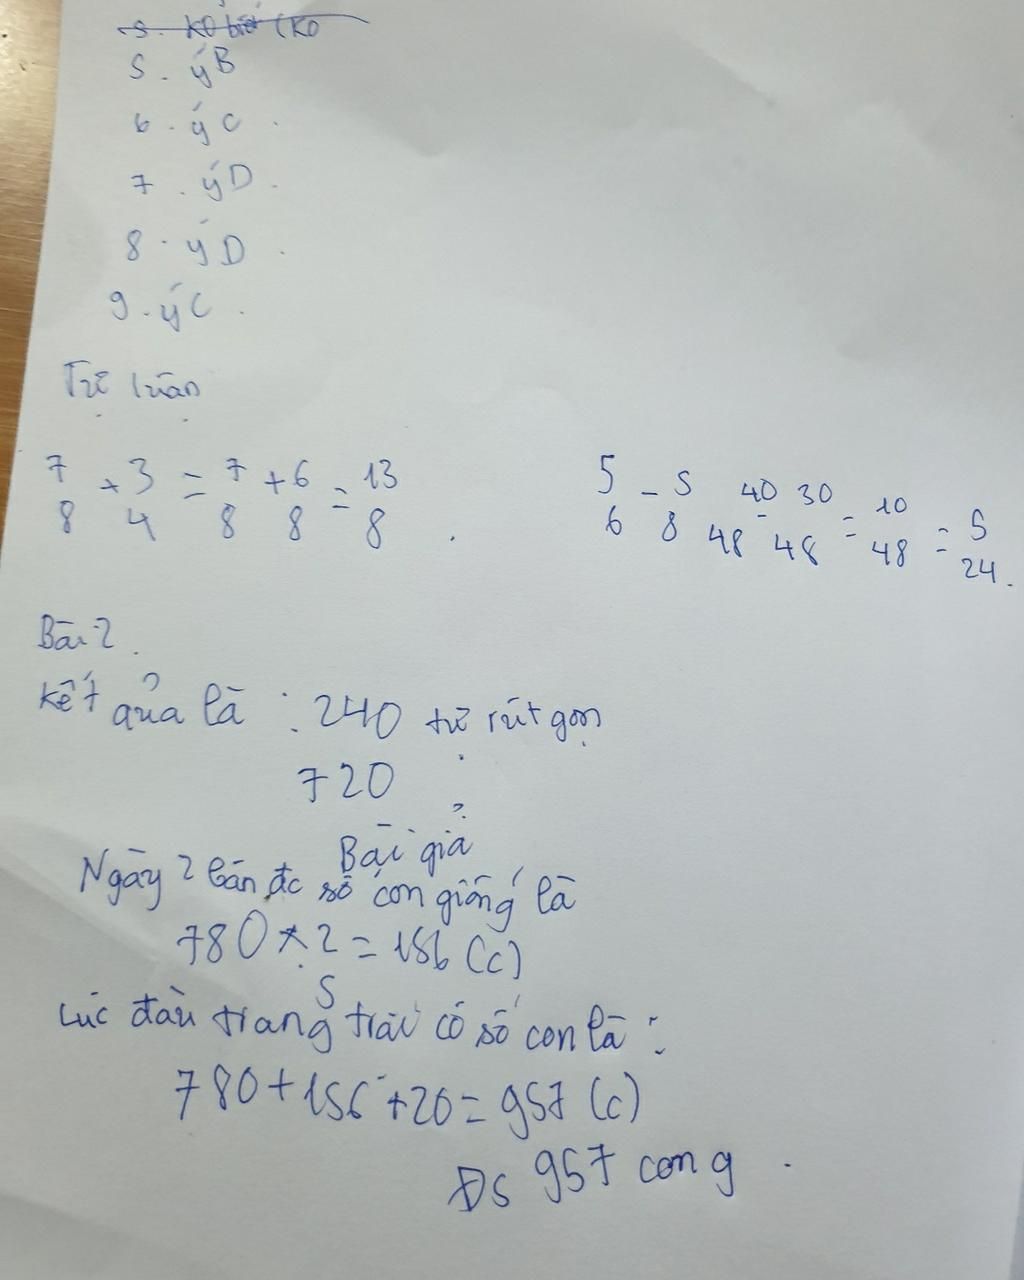 5. Ko biết (Ko
5. ý B
6. ý C.
7. ý D.
8. ý D.
9. ý C.
Tự luận
7 + 3 = 7 + 6 = 13
8 4 8 8 8 .
5 - 5 40 - 30 = 10 = 5
6 8 48 48 48 24.
Bài 2.
Kết quả là : 240 tự rút gọn
720
Bài giả
Ngày 2 bán đc số con giống là
780 x 2 = 156 (c)
5
Lúc đầu trang trại có số con là :
780 + 156 + 20 = 957 (c)
Đs 957 con g .